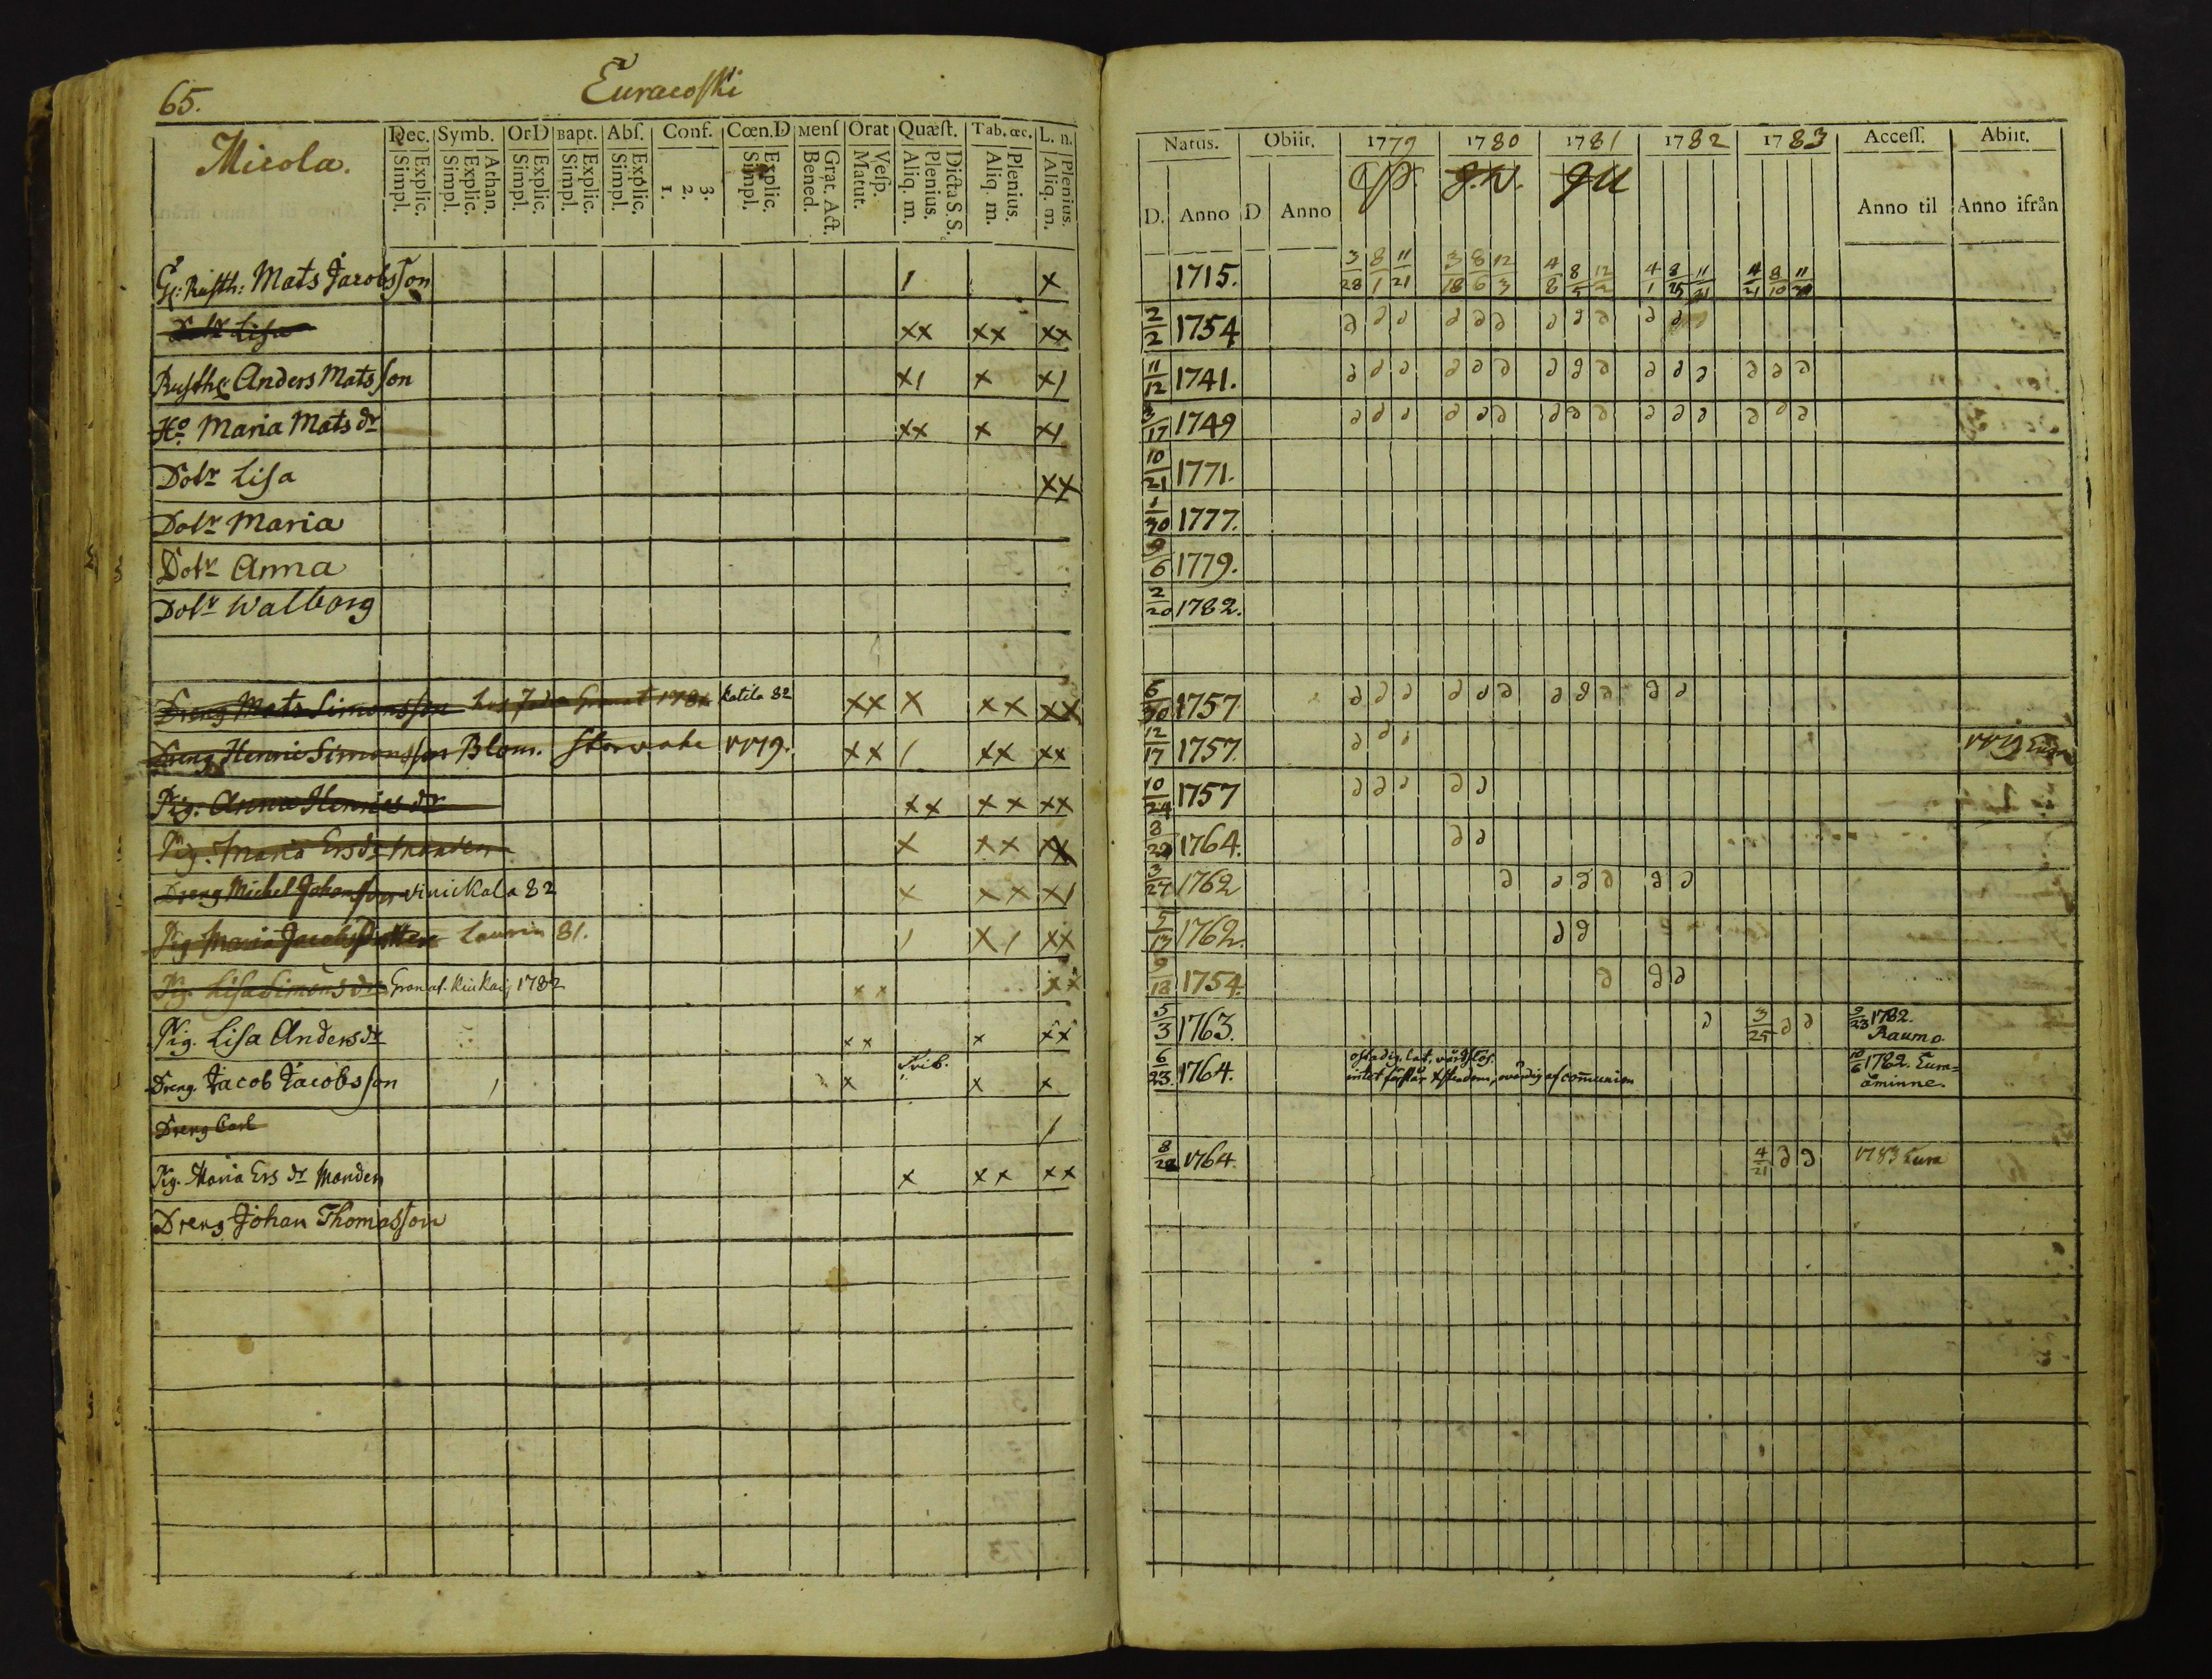 65.
Euracoski
Micola.
Dec. Symb. Or D Bapt. Abs. Conf. Cœn. D Mens Orat Quæst. Tab. œc. L. n.
Simpl. Explic. Simpl. Explic. Athan. Simpl. Explic. Simpl. Explic. Simpl. Explic. 1. 2. 3. Simpl. Explic. Bened. Grat. Act. Matut. Vesp. Aliq. m. Plenius. Dicta S.S. Aliq. m. Plenius. Aliq. m. Plenius.
Natus. Obiit. 1779 1780 1781 1782 1783 Access. Abiit.
D. Anno D Anno Anno til Anno ifrån
Gl: Rusth: Mats Jacobsson 1 x 1715. 3/28 8/1 11/21 3/18 8/6 12/3 4/8 8/5 12/2 4/1 8/25 11/21 4/21 8/10 11/20
Dotr Lisa xx xx xx 2/2 1754
Rusth: Anders Matsson x1 x x1 11/12 1741.
Ho Maria Mats dr xx x x1 3/17 1749
Dotr Lisa xx 10/21 1771.
Dotr Maria 1/30 1777.
Dotr Anna 9/6 1779.
Dotr Walborg 2/20 1782.
Dreng Mats Simonsson 1781 Katila 82 xx x xx xx 6/30 1757
Dreng Henric Simonsson Blom. 1779. xx 1 xx xx 12/17 1757. 1779 Eura
Pig. Anna Henrics dr xx xx xx 10/24 1757
Pig. Maria Ers dr Manden x xx xx 8/28 1764.
Dreng Michel Johansson Vinickala 82 x xx x1 3/27 1762
Pig Maria Jacobs Laurin 81. 1 x1 xx 5/13 1762.
Pig. Lisa Simons dr Granat. Kiukais 1782 xx xx 9/18 1754.
Pig. Lisa Anders dr xx x xx 5/3 1763. 3/25 1782. Raumo
Dreng Jacob Jacobsson 1 x Trib. x x 6/23 1764. ostadig, lat, vårdslös.
intet förstår Xstendom, ovärdig af communion 1782. Eura=
åminne.
Dreng Carl 1
Pig. Maria Ers dr Manden x xx xx 8/28 1764. 4/21 1783 Eura
Dreng Johan Thomasson